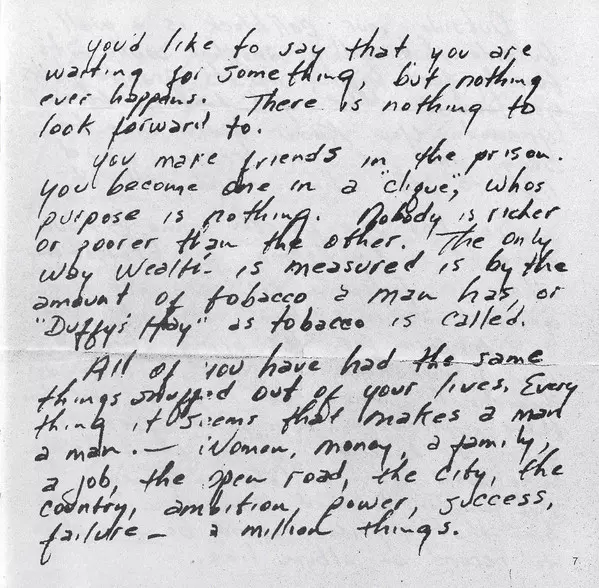 you'd like to say that you are
waiting for something, but nothing
ever happens. There is nothing to
look forward to.
you make friends in the prison.
you become one in a "clique", whos
purpose is nothing. Nobody is richer
or poorer than the other. The only
way wealth is measured is by the
amount of tobacco a man has, or
"Duffy's Hay" as tobacco is called.
All of you have had the same
things snuffed out of your lives. Every
thing it seems that makes a man
a man. — women, money, a family,
a job, the open road, the city, the
country, ambition, power, success,
failure — a million things.
7